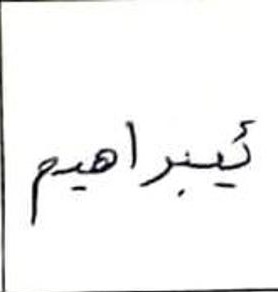 ئیبراهیم